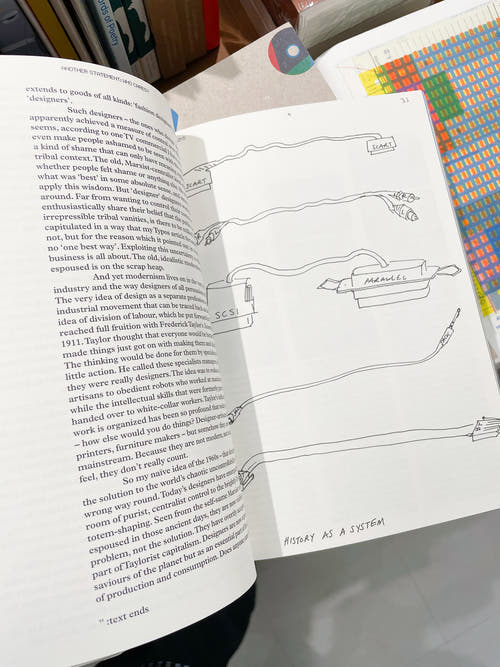 rds of Poetry
ANOTHER STATEMENT: WHO CARES?
extends to goods of all kinds: 'fashion
'designers'.
Such designers – the ones who
apparently achieved a measure of
seems, according to one TV commercial
even make people ashamed to be seen
a kind of shame that can only have
tribal context. The old, Marxist-centralist
whether people felt shame or anything else
what was 'best' in some absolute sense, and
apply this wisdom. But 'designer' design
around. Far from wanting to control their
enthusiastically share their belief that the
irrepressible tribal vanities, is there to be
capitulated in a way that my Typos article
not, but for the reason which it pointed out
no 'one best way'. Exploiting this uncertainty
business is all about. The old, idealistic
espoused is on the scrap heap.
And yet modernism lives on in the
industry and the way designers of all
The very idea of design as a separate
industrial movement that can be traced back
idea of division of labour, which he put
reached full fruition with Frederick Taylor's
1911. Taylor thought that everyone would be
made things just got on with making them
The thinking would be done for them by
little action. He called these specialists
they were really designers. The idea was to
artisans to obedient robots who worked at
while the intellectual skills that were formerly
handed over to white-collar workers. Taylor's
work is organized has been so profound that
– how else would you do things? Designer-
printers, furniture makers – but somehow
mainstream. Because they are not modern,
feel, they don't really count.
So my naïve idea of the 1960s – that
the solution to the world's chaotic
wrong way round. Today's designers have
room of purist, centralist control to the
totem-shaping. Seen from the self-same
espoused in those ancient days, they are now
problem, not the solution. They have overtly
part of Taylorist capitalism. Designers are now
saviours of the planet but as an essential part of
of production and consumption. Does anyone
:text ends
31
SCART
SCART
SCSI
PARALLEL
HISTORY AS A SYSTEM